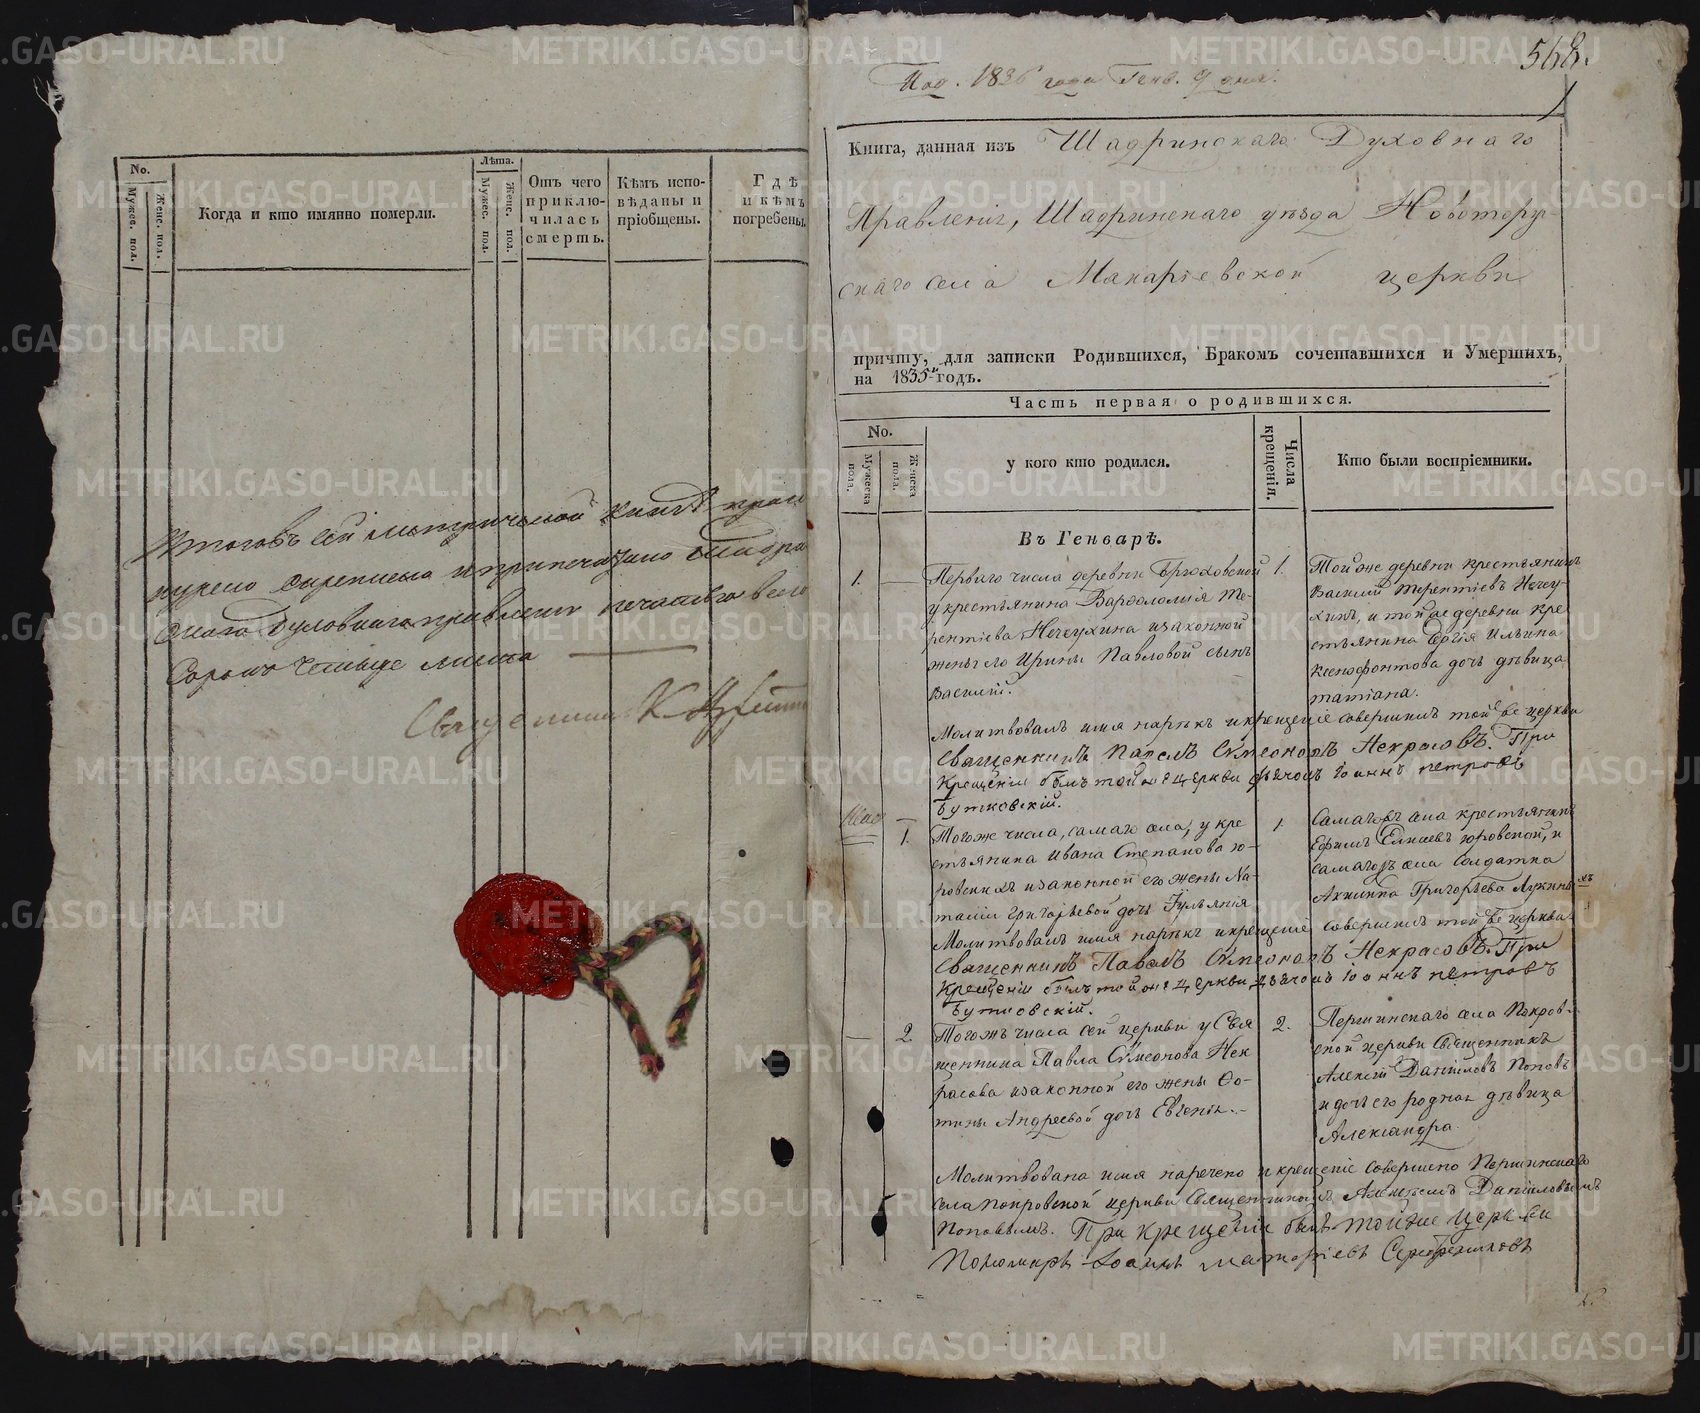 No.
Мужес. пол.
Женс. пол.
Когда и кто имянно померли.
Лѣта.
Мужес. пол.
Женс. пол.
Отъ чего приклю-
чилась
смерть.
Кѣмъ испо-
вѣданы и
пріобщены.
Гдѣ
и кѣмъ
погребены.
Итого въ сей метрической книгѣ
нумено скрепленно и припечатано Шадрин
скаго Духовнаго правленія печатью всего
Сорокъ четыре листа
Священникъ
568.
Под. 1836 года Генв. 9 дня.
1
Книга, данная изъ Шадринскаго Духовнаго
Правленія, Шадринскаго уѣзда Новотору-
скаго села Макаріевской церкви
причту, для записки Родившихся, Бракомъ сочетавшихся и Умершихъ,
на 1835й годъ.
Часть первая о родившихся.
No.
Мужеска пола.
Женска пола.
у кого кто родился.
Числа крещенія.
Кто были воспріемники.
Въ Генварѣ.
1. Перваго числа деревни Брюховской
у крестьянина Варѳоломея Те-
рентіева Нечеухина изаконной
жены его Ирины Павловой сынъ
Василій.
1. Той же деревни крестьянинъ
Василій Терентіевъ Нечеу-
хинъ, и той же деревни кре
стьянина Сергія Ильина
Ксенофонтова дочь дѣвица
татіана.
Молитвовалъ имя нарѣкъ и крещеніе совершилъ той же церкви
Священникъ Павелъ Сѵмеоновъ Некрасовъ. При
Крещеніи былъ той же церкви дьячокъ Іоаннъ петровъ
Бутковскій.
1. Тогоже числа, самаго села, у кре
стьянина Ивана Степанова ю-
ровскихъ изаконной его жены На
таліи Григорьевой дочь Іуліанія
1. Самаговъ села крестьянинъ
Ефимъ Елисеевъ юровской, и
самагожъ села Солдатка
Акилина Григорьева Лукиныхъ
Молитвовалъ имя нарѣкъ и крещеніе совершилъ той же церкви
Священникъ Павелъ Сѵмеоновъ Некрасовъ. При
Крещеніи былъ той же церкви дьячокъ Іоаннъ петровъ
Бутковскій.
2. Тогожъ числа сей церкви у Свя
щенника Павла Сѵмеонова Нек
расова изаконной его жены Фо-
тины Андреевой дочь Евгенія.
2. Першинскаго села Покров-
ской церкви Священникъ
Алексій Даніиловъ Поповъ
и дочь его родная дѣвица
Александра.
Молитвована имя наречено и крещеніе совершено Першинскаго
села покровской церкви Священникомъ Алексѣемъ Даніиловымъ
Поповымъ. При крещеніи былъ тойже Церкви
Пономарь Іоаннъ Серебренниковъ
METRIKI.GASO-URAL.RU